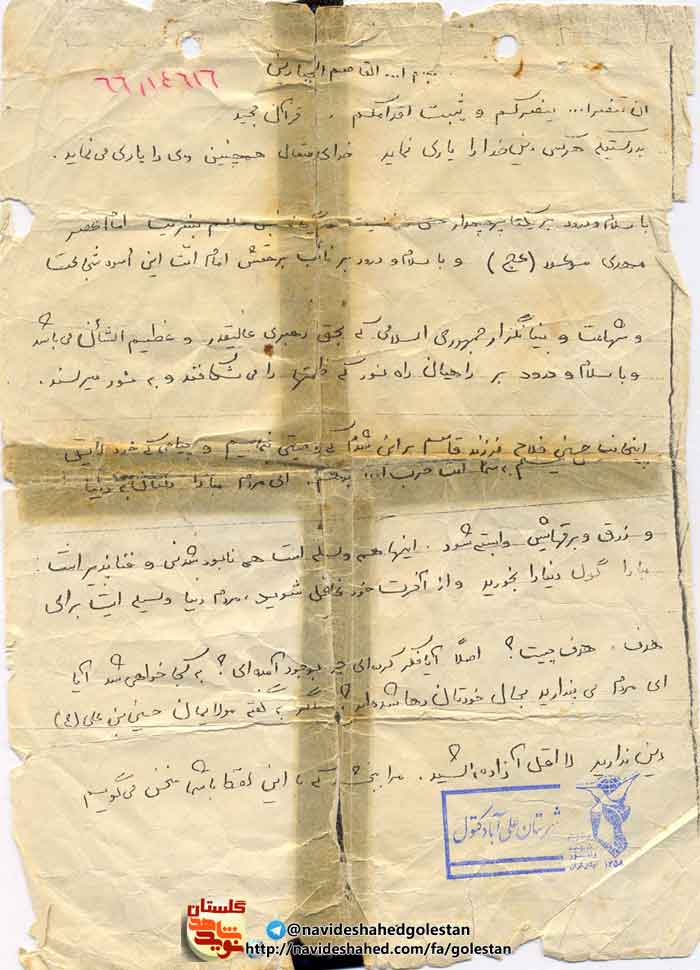 ۶۶/۱۴۶۱۶
بسم ا... القاصم الجبارین
ان تنصرا... ینصرکم و یثبت اقدامکم . قرآن مجید
بدرستیکه هرکس دین خدا را یاری نماید خدای متعال همچنین وی را یاری می نماید .
با سلام و درود بر یکتا پرچمدار حق و امام عصر
مهدی موعود (عج) و با سلام و درود بر نائب برحقش امام امت این اسوه شجاعت
و شهامت و بنیانگزار جمهوری اسلامی که بحق رهبری عالیقدر و عظیم الشأن می باشد
و با سلام و درود بر راهیان راه نور که ظلمتها را می شکافند و به نور میرسند .
اینجانب حسین فلاح فرزند قاسم برای شما که وصیتی بنمایم و پیامی که خود لایق
نیستم ، شما امت حزب ا... بدهم . ای مردم مبادا دلتان به دنیا
و زرق و برقهایش وابسته شود . اینها همه وسیله است همه نابود شدنی و فناپذیر است
مبادا گول دنیا را بخورید و از آخرت خود غافل شوید ، مردم دنیا وسیله ایست برای
هدف . هدف چیست ؟ اصلاً آیا فکر کرده ای چرا بوجود آمده ای ؟ به کجا خواهی شد آیا
ای مردم می پندارید بحال خودتان رها شده اید ؟ مگر به گفته مولایمان حسین بن علی (ع)
دین ندارید لااقل آزاده باشید . مرا ببخشید که با این لفظ با شما سخن می گویم
شهرستان علی آباد کتول
۱۳۵۸
گلستان
نوید شاهد
@navideshahedgolestan
http://navideshahed.com/fa/golestan